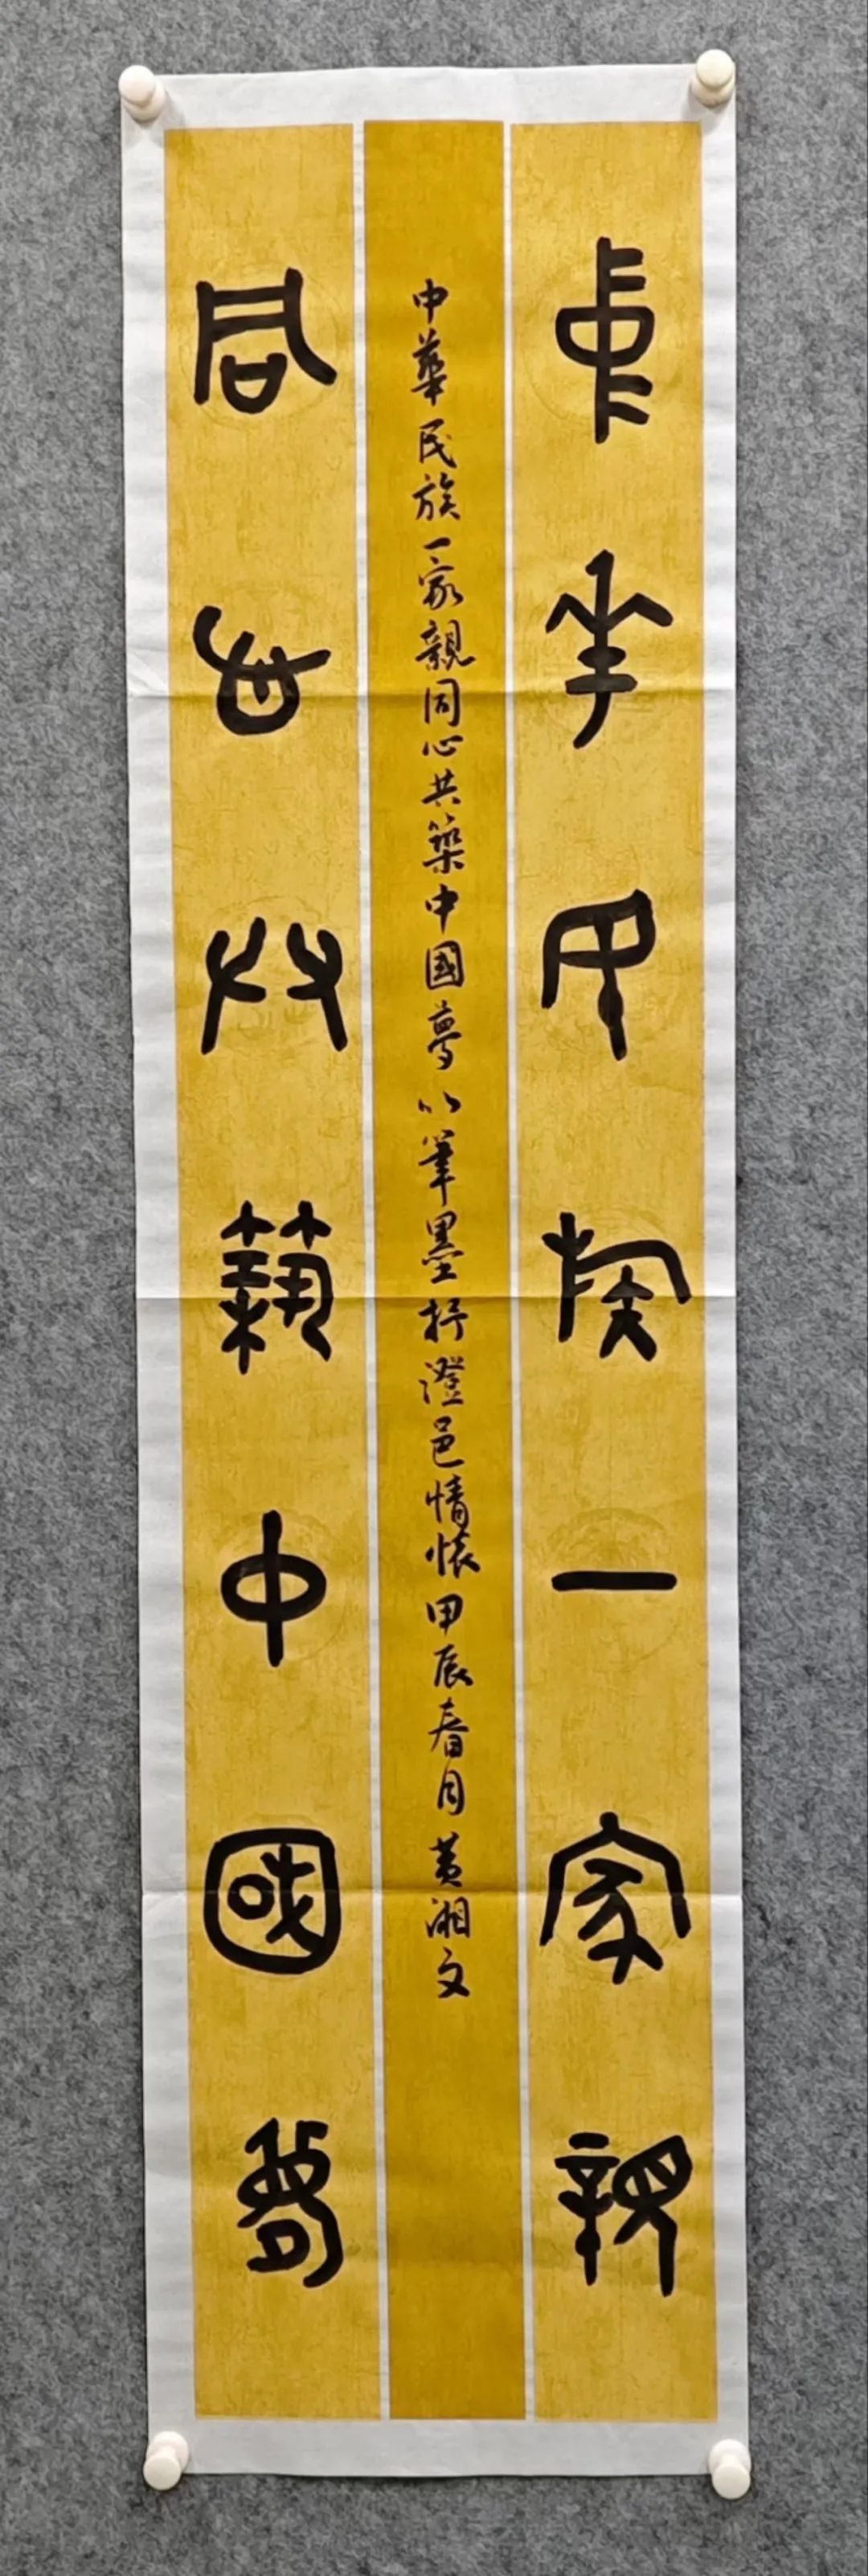 中華民族一家親
中華民族一家親同心共築中國夢以筆墨抒澄邑情懷甲辰春月黃湘文
同心共築中國夢